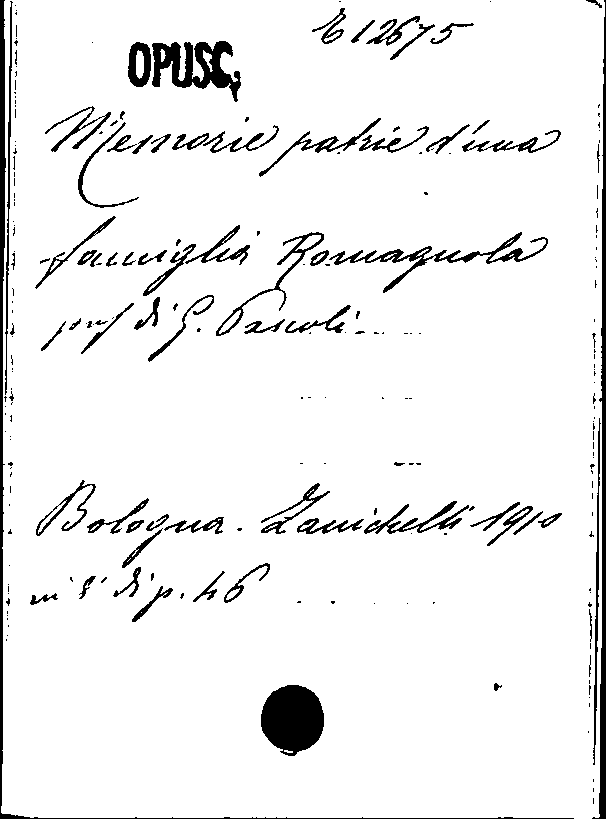 E 12675
OPUSC.
Memorie patrie d'una
famiglia Romagnola
pref di G. Pascoli
Bologna. Zanichelli 1910
in 8° di p. 46